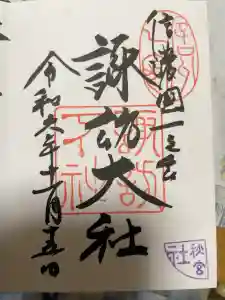 信濃國一之宮
諏訪大社
令和六年十一月十五日
諏訪
下社
秋宮
社